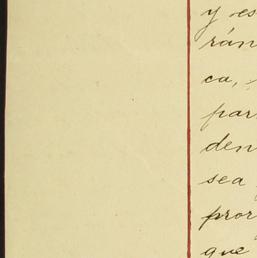 y es
rán
ca,
par
den
sea
pror
que